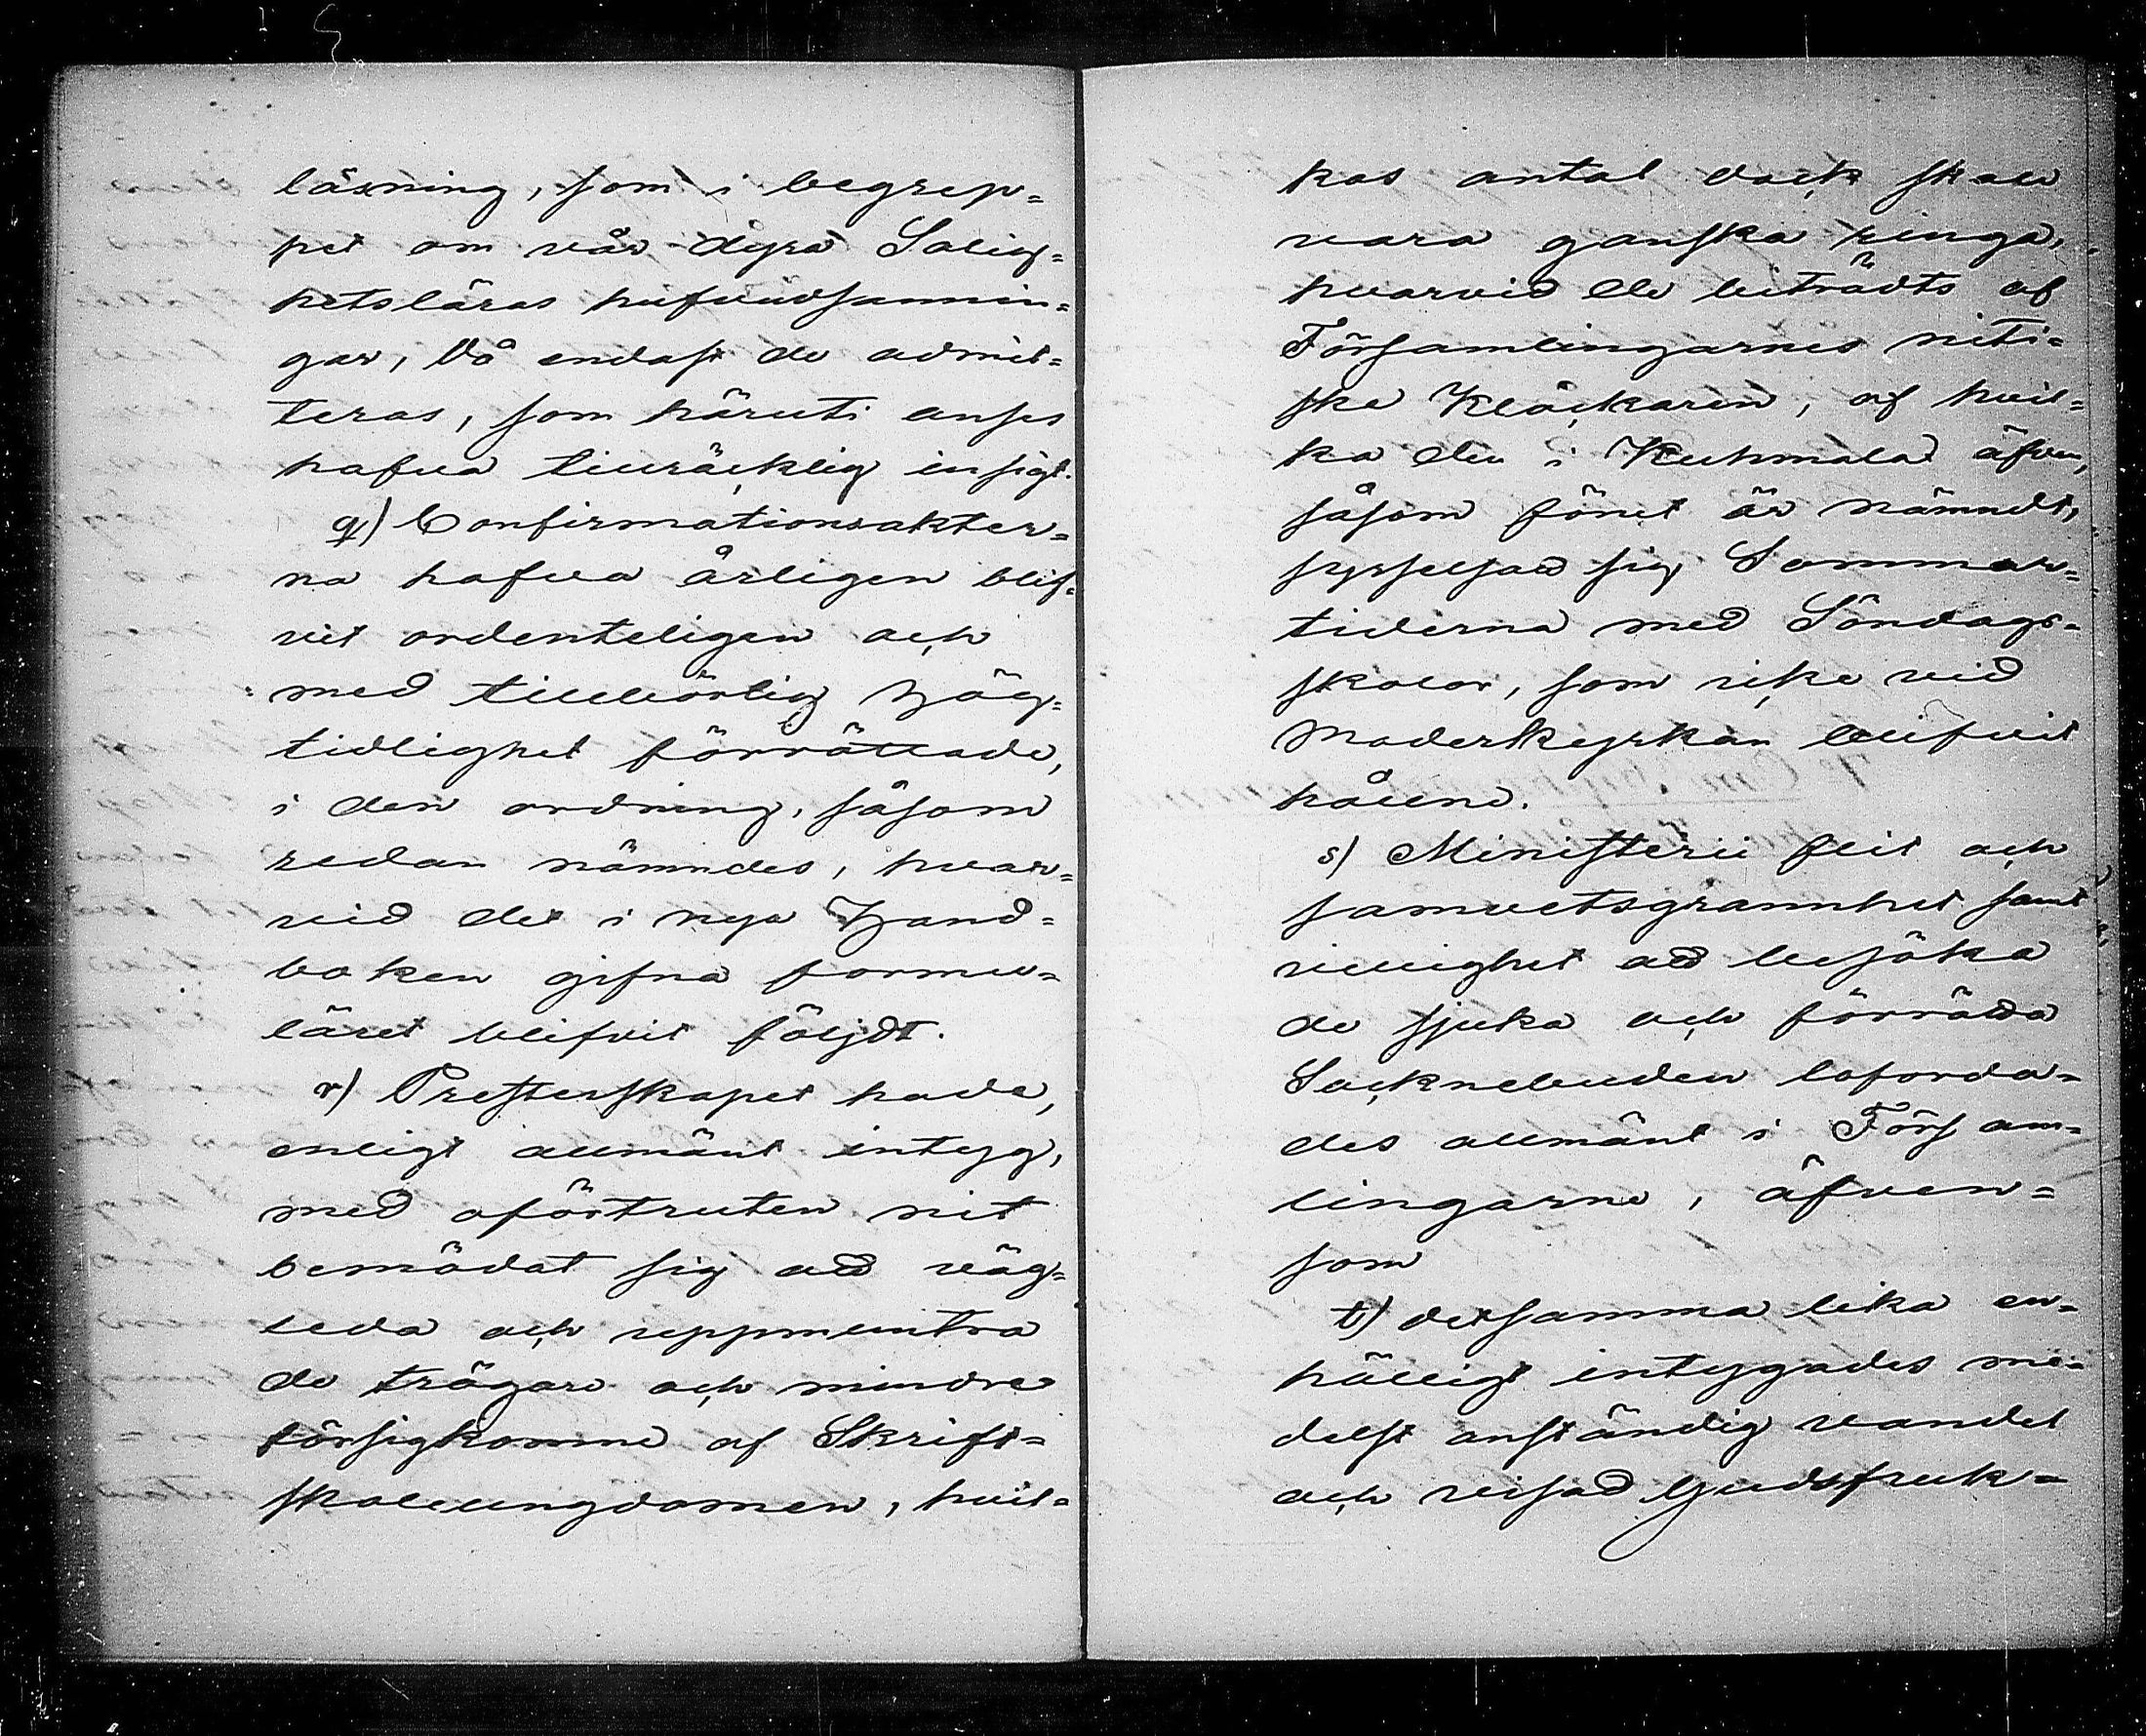 läsning, som i begrep=
pet om vår dyra Salig=
hetsläras hufvudsannin=
gar, då endast de admit=
teras, som häruti anses
hafva tillräcklig insigt.
q) Confirmationsakter=
na hafva årligen blif=
vit ordenteligen och
med tillbörlig hög=
tidlighet förrättade,
i den ordning, såsom
redan nämndes, hvar=
vid det i nya Hand=
boken gifna formu=
läret blifvit följdt.
r) Presterskapet hade,
enligt allmänt intyg,
med oförtruten nit
bemödat sig att väg=
leda och uppmuntra
de trögare och mindre
försigkomne af Skrift=
skoleungdomen, hvil=
kas antal dock skall
vara ganska ringa,
hvarvid de biträdts af
Församlingarnes niti=
ske Klåckaren, af hvil=
ka den i Kuhmala äfven,
såsom förut är nämndt,
sysselsatt sig Sommar=
tiderna med Söndags=
skolor, som icke vid
Moderkyrkan blifvit
hållne.
s) Ministerii flit och
samvetsgrannhet samt
villighet att besöka
de sjuka och förrätta
Socknebuden loforda=
des allmänt i Försam=
lingarne, äfven=
som
t) detsamma lika en=
hälligt intygades me=
delst anständig vandel
och visad Gudsfruk=